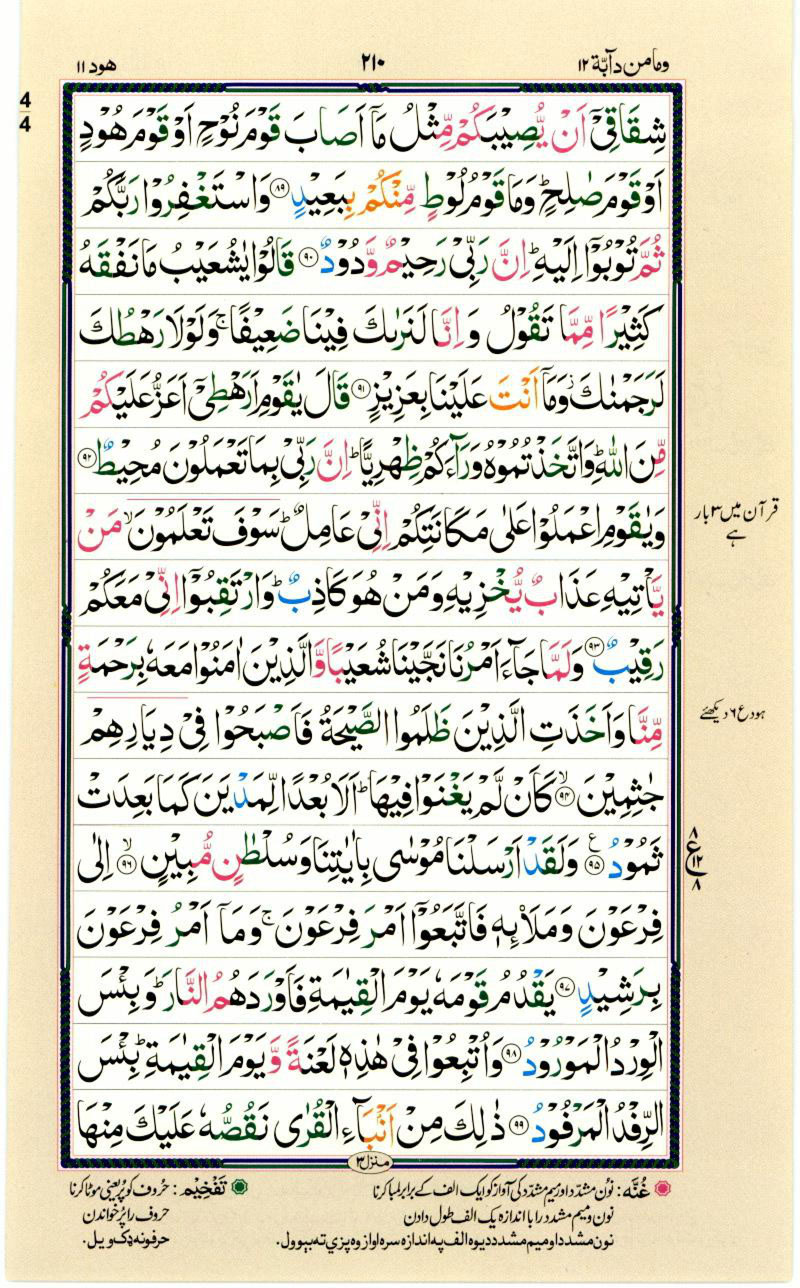 وما من دآبّة ١٢
٢١٠
هود ١١
4
4
شِقَاقِیْۤ اَنْ یُّصِیْبَكُمْ مِّثْلُ مَاۤ اَصَابَ قَوْمَ نُوْحٍ اَوْ قَوْمَ هُوْدٍ
اَوْ قَوْمَ صٰلِحٍؕ وَمَا قَوْمُ لُوْطٍ مِّنْكُمْ بِبَعِیْدٍ ﴿۸۹﴾ وَاسْتَغْفِرُوْا رَبَّكُمْ
ثُمَّ تُوْبُوْۤا اِلَیْهِؕ اِنَّ رَبِّیْ رَحِیْمٌ وَّدُوْدٌ ﴿۹۰﴾ قَالُوْا یٰشُعَیْبُ مَا نَفْقَهُ
كَثِیْرًا مِّمَّا تَقُوْلُ وَاِنَّا لَنَرٰىكَ فِیْنَا ضَعِیْفًاۚ وَلَوْلَا رَهْطُكَ
لَرَجَمْنٰكَؗ وَمَاۤ اَنْتَ عَلَیْنَا بِعَزِیْزٍ ﴿۹۱﴾ قَالَ یٰقَوْمِ اَرَهْطِیْۤ اَعَزُّ عَلَیْكُمْ
مِّنَ اللّٰهِؕ وَاتَّخَذْتُمُوْهُ وَرَآءَكُمْ ظِهْرِیًّاؕ اِنَّ رَبِّیْ بِمَا تَعْمَلُوْنَ مُحِیْطٌ ﴿۹۲﴾
وَیٰقَوْمِ اعْمَلُوْا عَلٰی مَكَانَتِكُمْ اِنِّیْ عَامِلٌؕ سَوْفَ تَعْلَمُوْنَۙ مَنْ
قرآن میں ۳ بار
ہے
یَّاْتِیْهِ عَذَابٌ یُّخْزِیْهِ وَمَنْ هُوَ كَاذِبٌؕ وَارْتَقِبُوْۤا اِنِّیْ مَعَكُمْ
رَقِیْبٌ ﴿۹۳﴾ وَلَمَّا جَآءَ اَمْرُنَا نَجَّیْنَا شُعَیْبًا وَّالَّذِیْنَ اٰمَنُوْا مَعَهٗ بِرَحْمَةٍ
مِّنَّا وَاَخَذَتِ الَّذِیْنَ ظَلَمُوا الصَّیْحَةُ فَاَصْبَحُوْا فِیْ دِیَارِهِمْ
ہود ع ۶ دیکھئے
جٰثِمِیْنَۙ ﴿۹۴﴾ كَاَنْ لَّمْ یَغْنَوْا فِیْهَاؕ اَلَا بُعْدًا لِّمَدْیَنَ كَمَا بَعِدَتْ
ثَمُوْدُ ﴿۹۵﴾ع وَلَقَدْ اَرْسَلْنَا مُوْسٰی بِاٰیٰتِنَا وَسُلْطٰنٍ مُّبِیْنٍۙ ﴿۹۶﴾ اِلٰی
۸
ع ۱۲
۸
فِرْعَوْنَ وَمَلَا۟ئِهٖ فَاتَّبَعُوْۤا اَمْرَ فِرْعَوْنَۚ وَمَاۤ اَمْرُ فِرْعَوْنَ
بِرَشِیْدٍ ﴿۹۷﴾ یَقْدُمُ قَوْمَهٗ یَوْمَ الْقِیٰمَةِ فَاَوْرَدَهُمُ النَّارَؕ وَبِئْسَ
الْوِرْدُ الْمَوْرُوْدُ ﴿۹۸﴾ وَاُتْبِعُوْا فِیْ هٰذِهٖ لَعْنَةً وَّیَوْمَ الْقِیٰمَةِؕ بِئْسَ
الرِّفْدُ الْمَرْفُوْدُ ﴿۹۹﴾ ذٰلِكَ مِنْ اَنْۢبَآءِ الْقُرٰی نَقُصُّهٗ عَلَیْكَ مِنْهَا
منزل ۳
غُنَّه: نون مشدد اور میم مشدّد کی آواز کو ایک الف کے برابر لمبا کرنا
نون و میم مشدد را با اندازہ یک الف طول دادن
نون مشدد او میم مشدد دیوه الف په اندازه سره اواز وه پزی ته بیوول.
تَفْخِیْم: حُروف کو پُر یعنی موٹا کرنا
حروف را پُر خواندن
حرفونه ډک ویل.